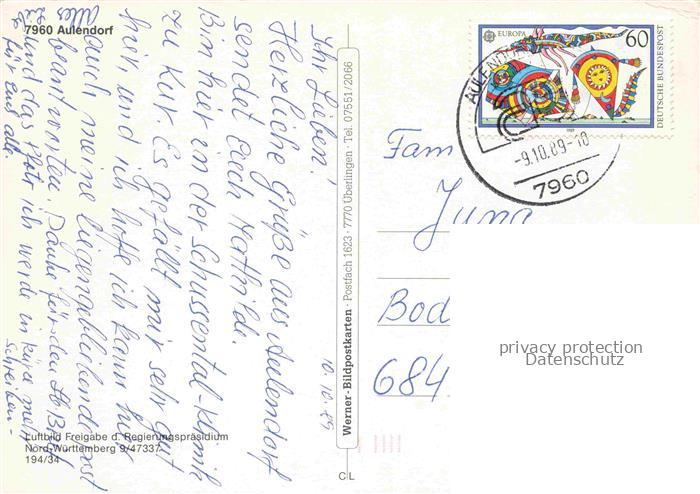 7960 Aulendorf
Ihr Lieben!
Herzliche Grüße aus Aulendorf
sendet Euch Mathilde.
Bin hier in der Schussental-Klinik
zu Kur. Es gefällt mir sehr gut
hier und ich hoffe ich kann hier
auch meine liegengebliebene Post
beantworten. Danke für den lb. Brief
und das Foto ich werde in Kürze mehr
schreiben.
Alles
für Euch alle.
10.10.89
Luftbild Freigabe d. Regierungspräsidium
Nord-Württemberg 9/47337
194/34
Werner-Bildpostkarten · Postfach 1623 · 7770 Überlingen · Tel. 07551/2066
C L
EUROPA
60
DEUTSCHE BUNDESPOST
1989
AULENDORF
-9.10.89-10
7960
Fam
Jung
Bod
684
privacy protection
Datenschutz